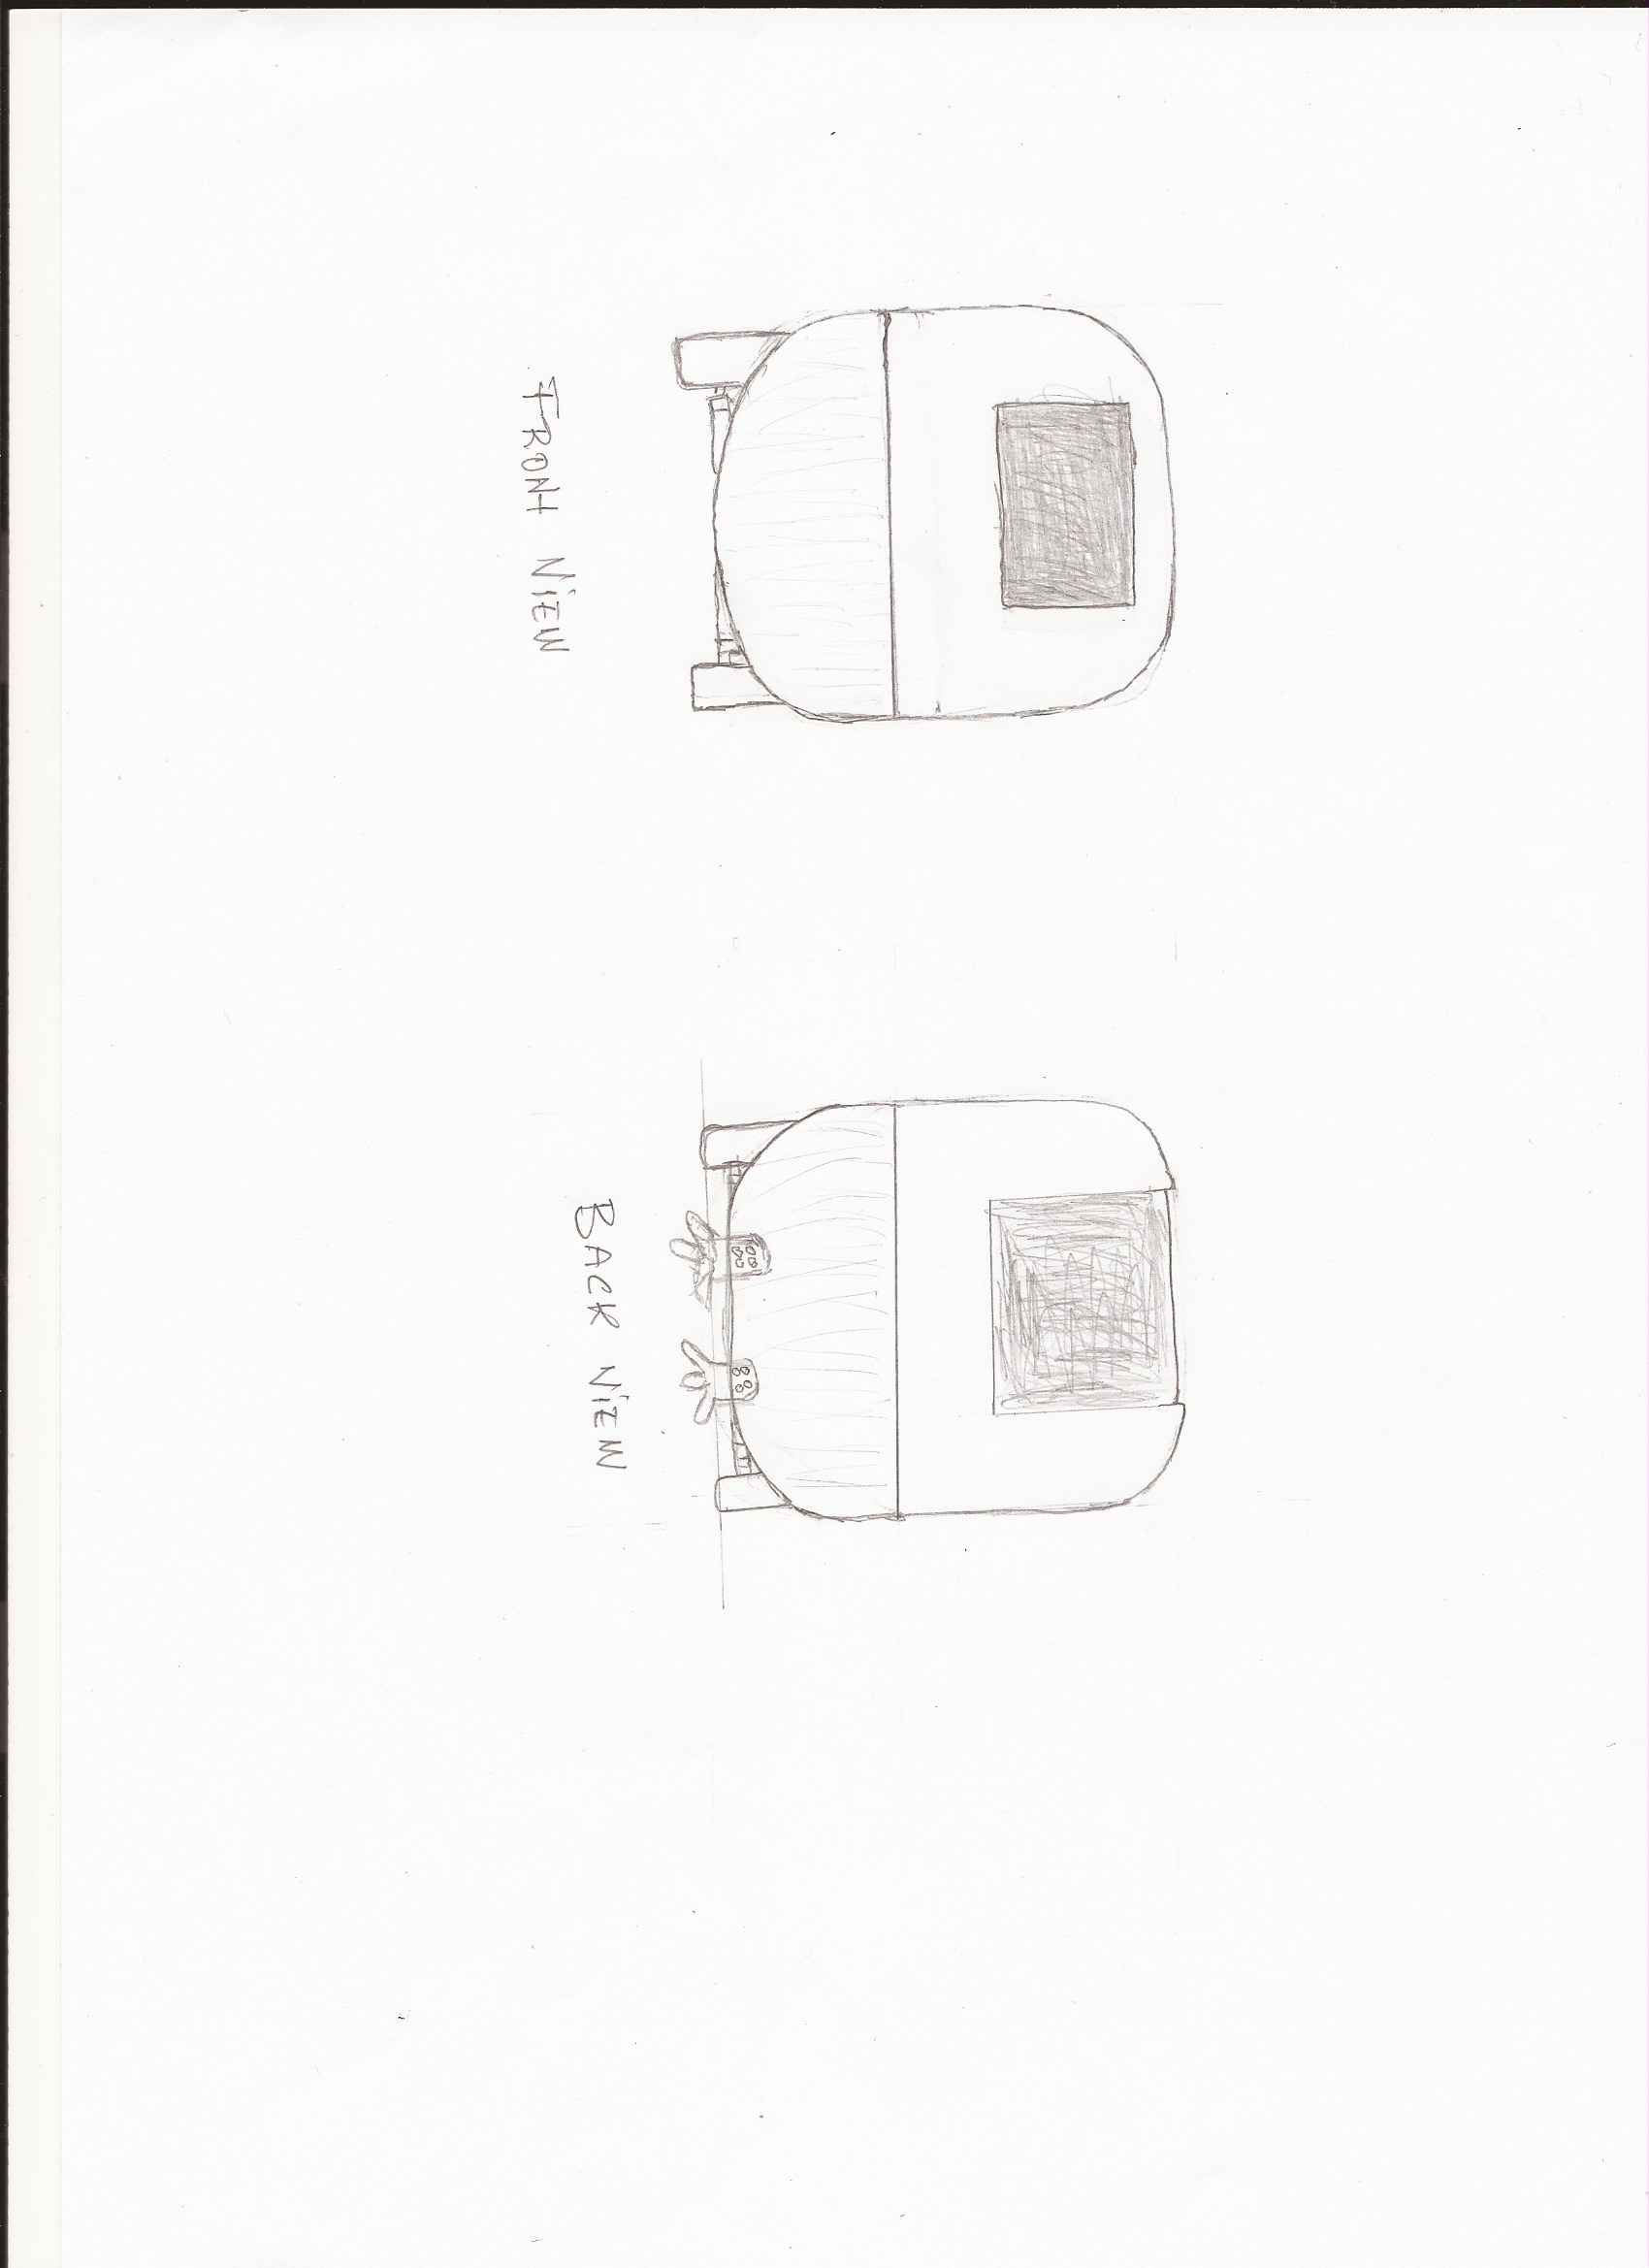 FRONT VIEW
BACK VIEW